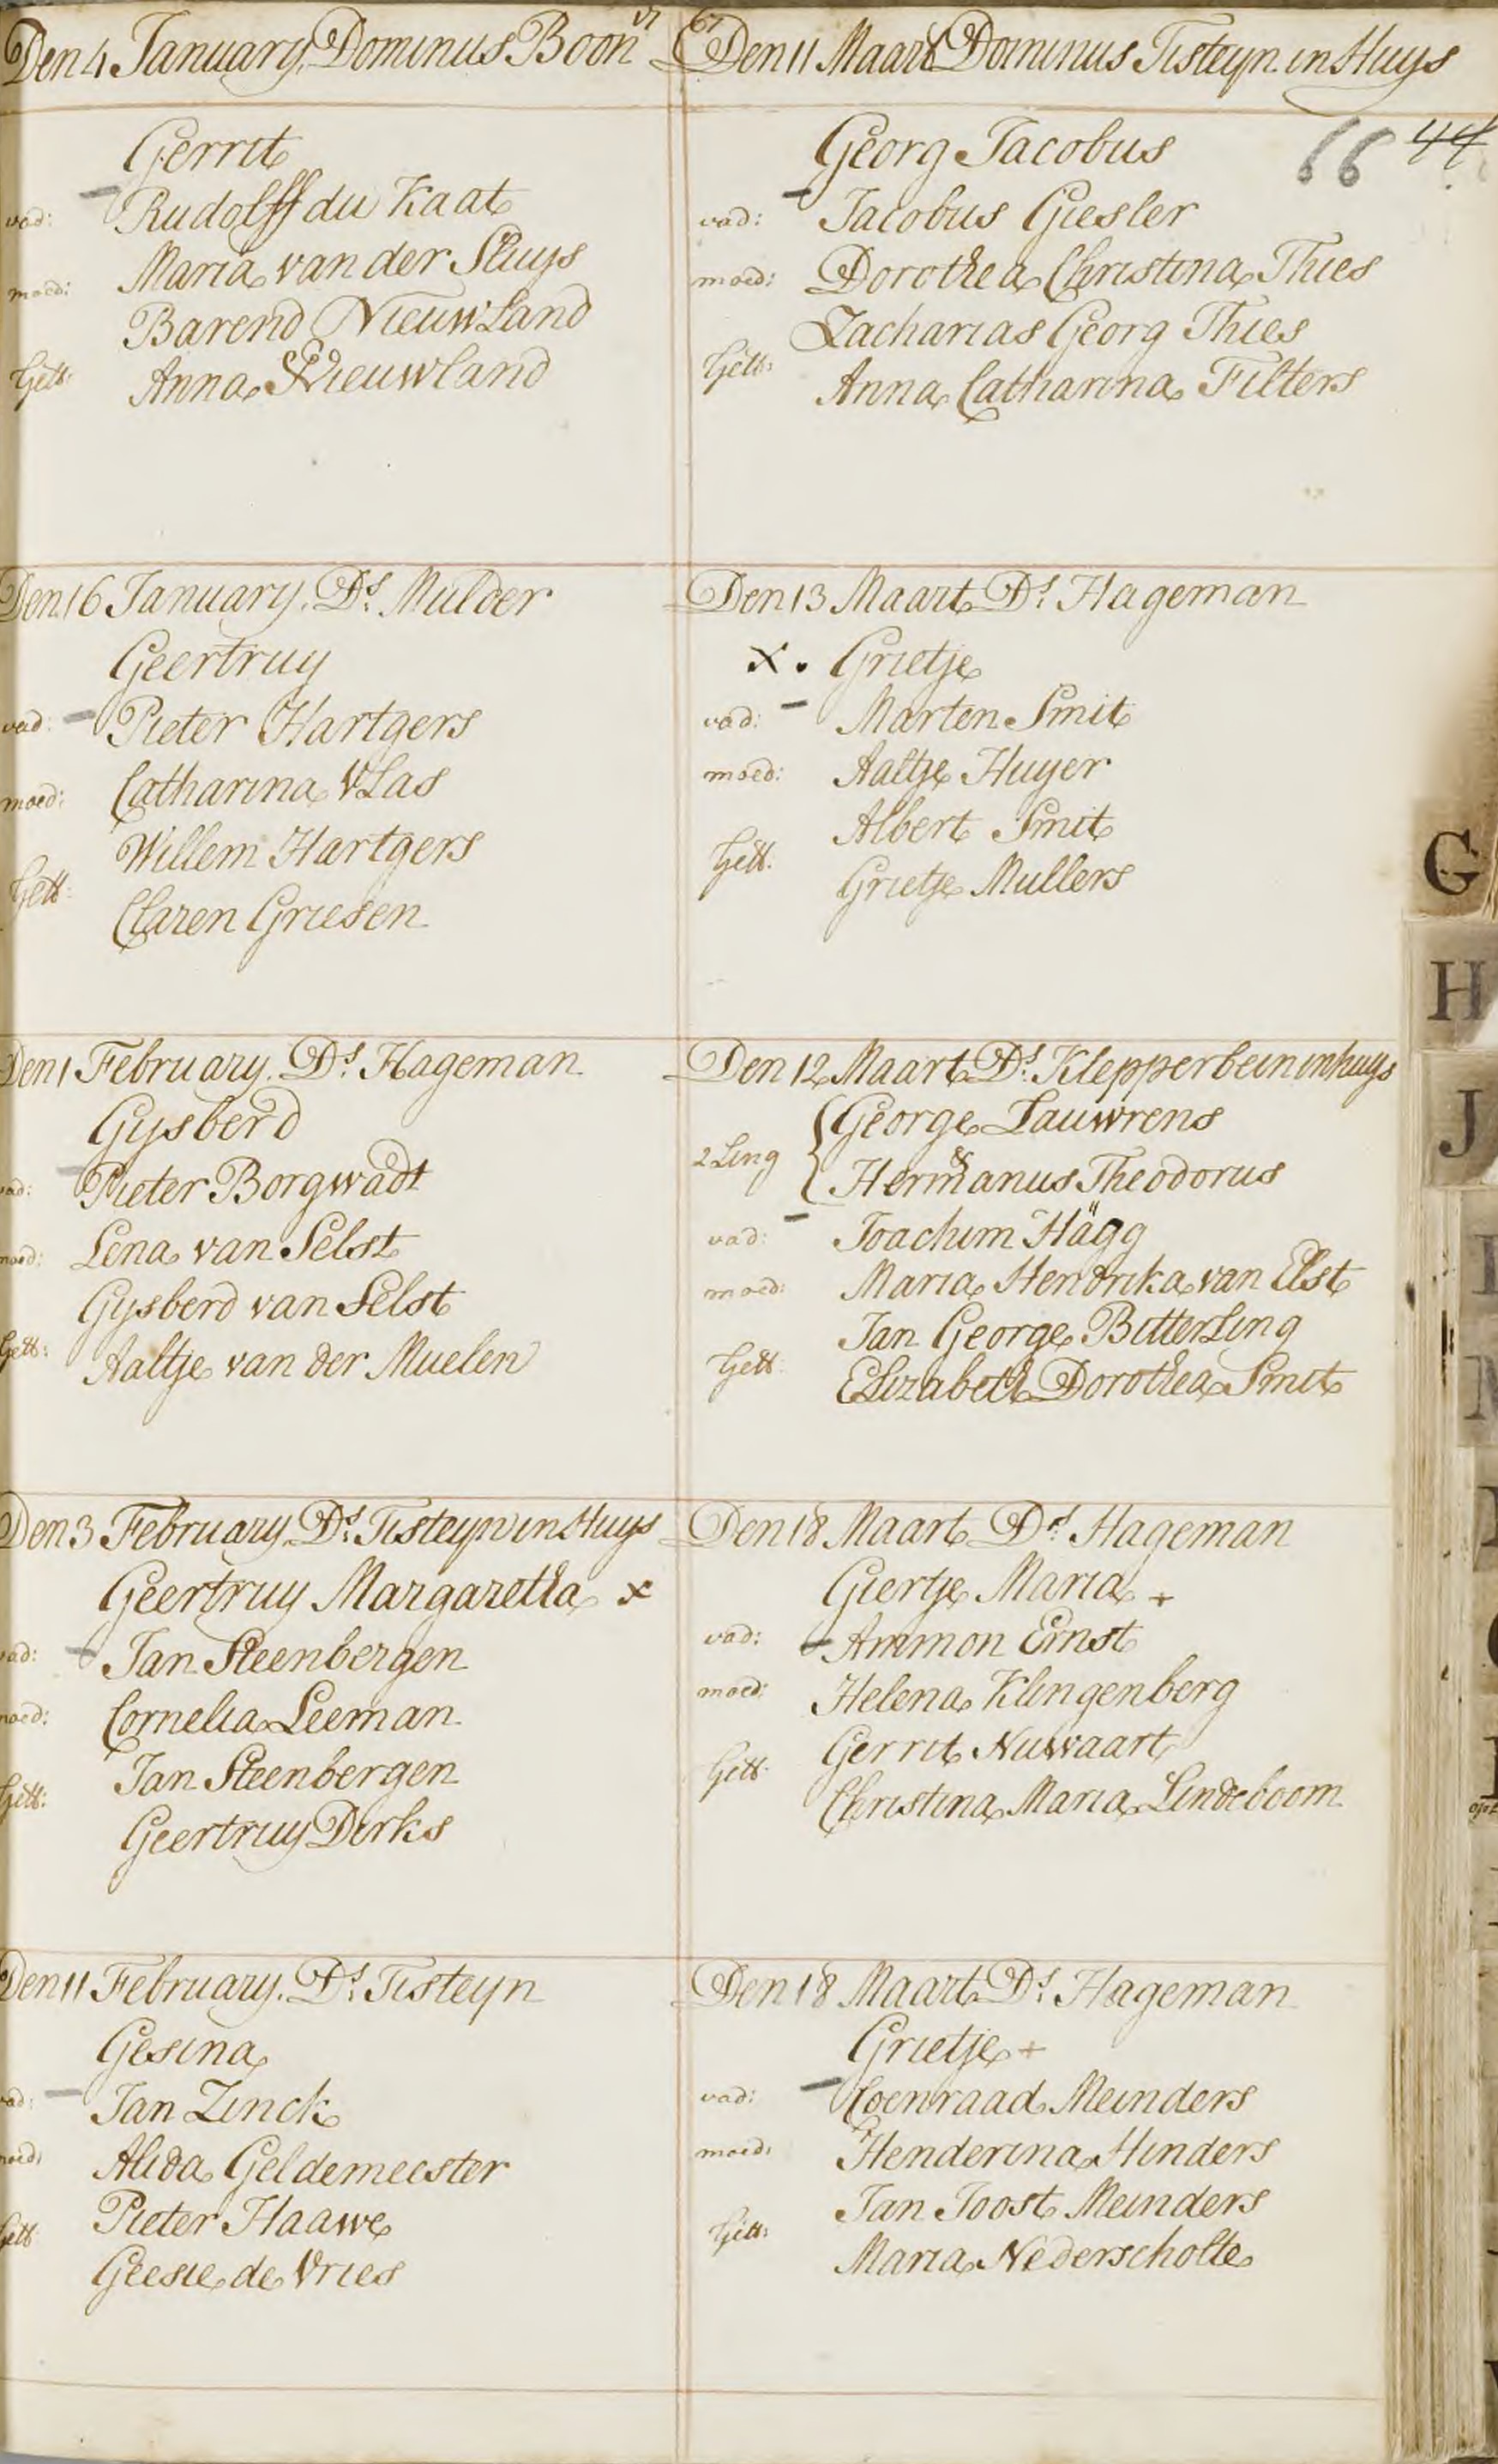 17 67
Den 4 January, Dominus Boon
Gerrit
vad: Rudolff du Kaat
moed: Maria van der Sluys
Barend Nieuwland
Gett: Anna Nieuwland
Den 16 January. Ds. Mulder
Geertruy
vad: Pieter Hartgers
moed: Catharina Vlas
Willem Hartgers
Gett: Claren Griesen
Den 1 February. Ds. Hageman
Gysberd
vad: Pieter Borgwadt
moed: Lena van Selst
Gysberd van Selst
Gett: Aaltje van der Muelen
Den 3 February. Ds. Tisteyn in Huys
Geertruy Margaretha x
vad: Jan Steenbergen
moed: Cornelia Leeman
Jan Steenbergen
Gett: Geertruy Derks
Den 11 February. Ds. Tisteyn
Gesina
vad: Jan Zinck
moed: Alida Geldemeester
Gett: Pieter Haawe
Geesie de Vries
Den 11 Maart Dominus Tisteyn in Huys
66 44
Georg Jacobus
vad: Jacobus Giesler
moed: Dorothea Christina Thies
Zacharias Georg Thies
Gett: Anna Catharina Filters
Den 13 Maart Ds. Hageman
x. Grietje
vad: Marten Smit
moed: Aaltje Huyer
Albert Smit
Gett. Grietje Mullers
Den 12 Maart Ds. Klepperbein in huys
George Lauwrens
2 Ling &
Hermanus Theodorus
vad: Joachim Hägg
moed: Maria Hendrika van Elst
Jan George Bitterling
Gett: Elizabeth Dorothea Smit
Den 18 Maart Ds. Hageman
Giertje Maria +
vad: Ammon Ernst
moed: Helena Klingenberg
Gerrit Nuwaart
Gett. Christina Maria Lindeboom
Den 18 Maart Ds. Hageman
Grietje +
vad: Coenraad Meinders
moed: Henderina Hinders
Jan Joost Meinders
Gett: Maria Nederscholte
G
H
J